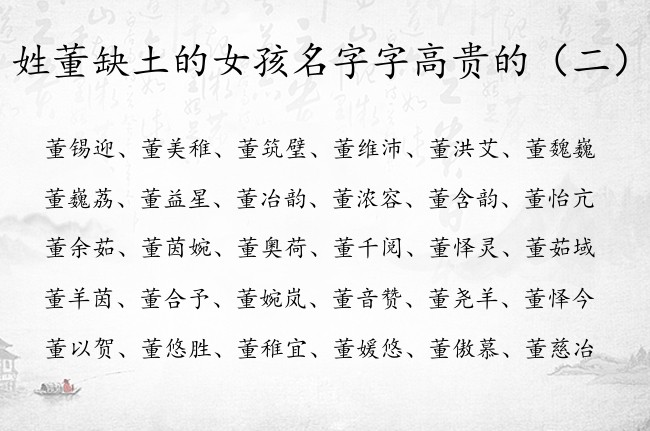 姓董缺土的女孩名字字高贵的（二）
董锡迎、董美稚、董筑璧、董维沛、董洪艾、董魏巍
董巍荔、董益星、董冶韵、董浓容、董含韵、董怡亢
董余茹、董茵婉、董奥荷、董千阅、董怿灵、董茹域
董羊茵、董合予、董婉岚、董音赞、董尧羊、董怿今
董以贺、董悠胜、董稚宜、董媛悠、董傲慕、董慈冶